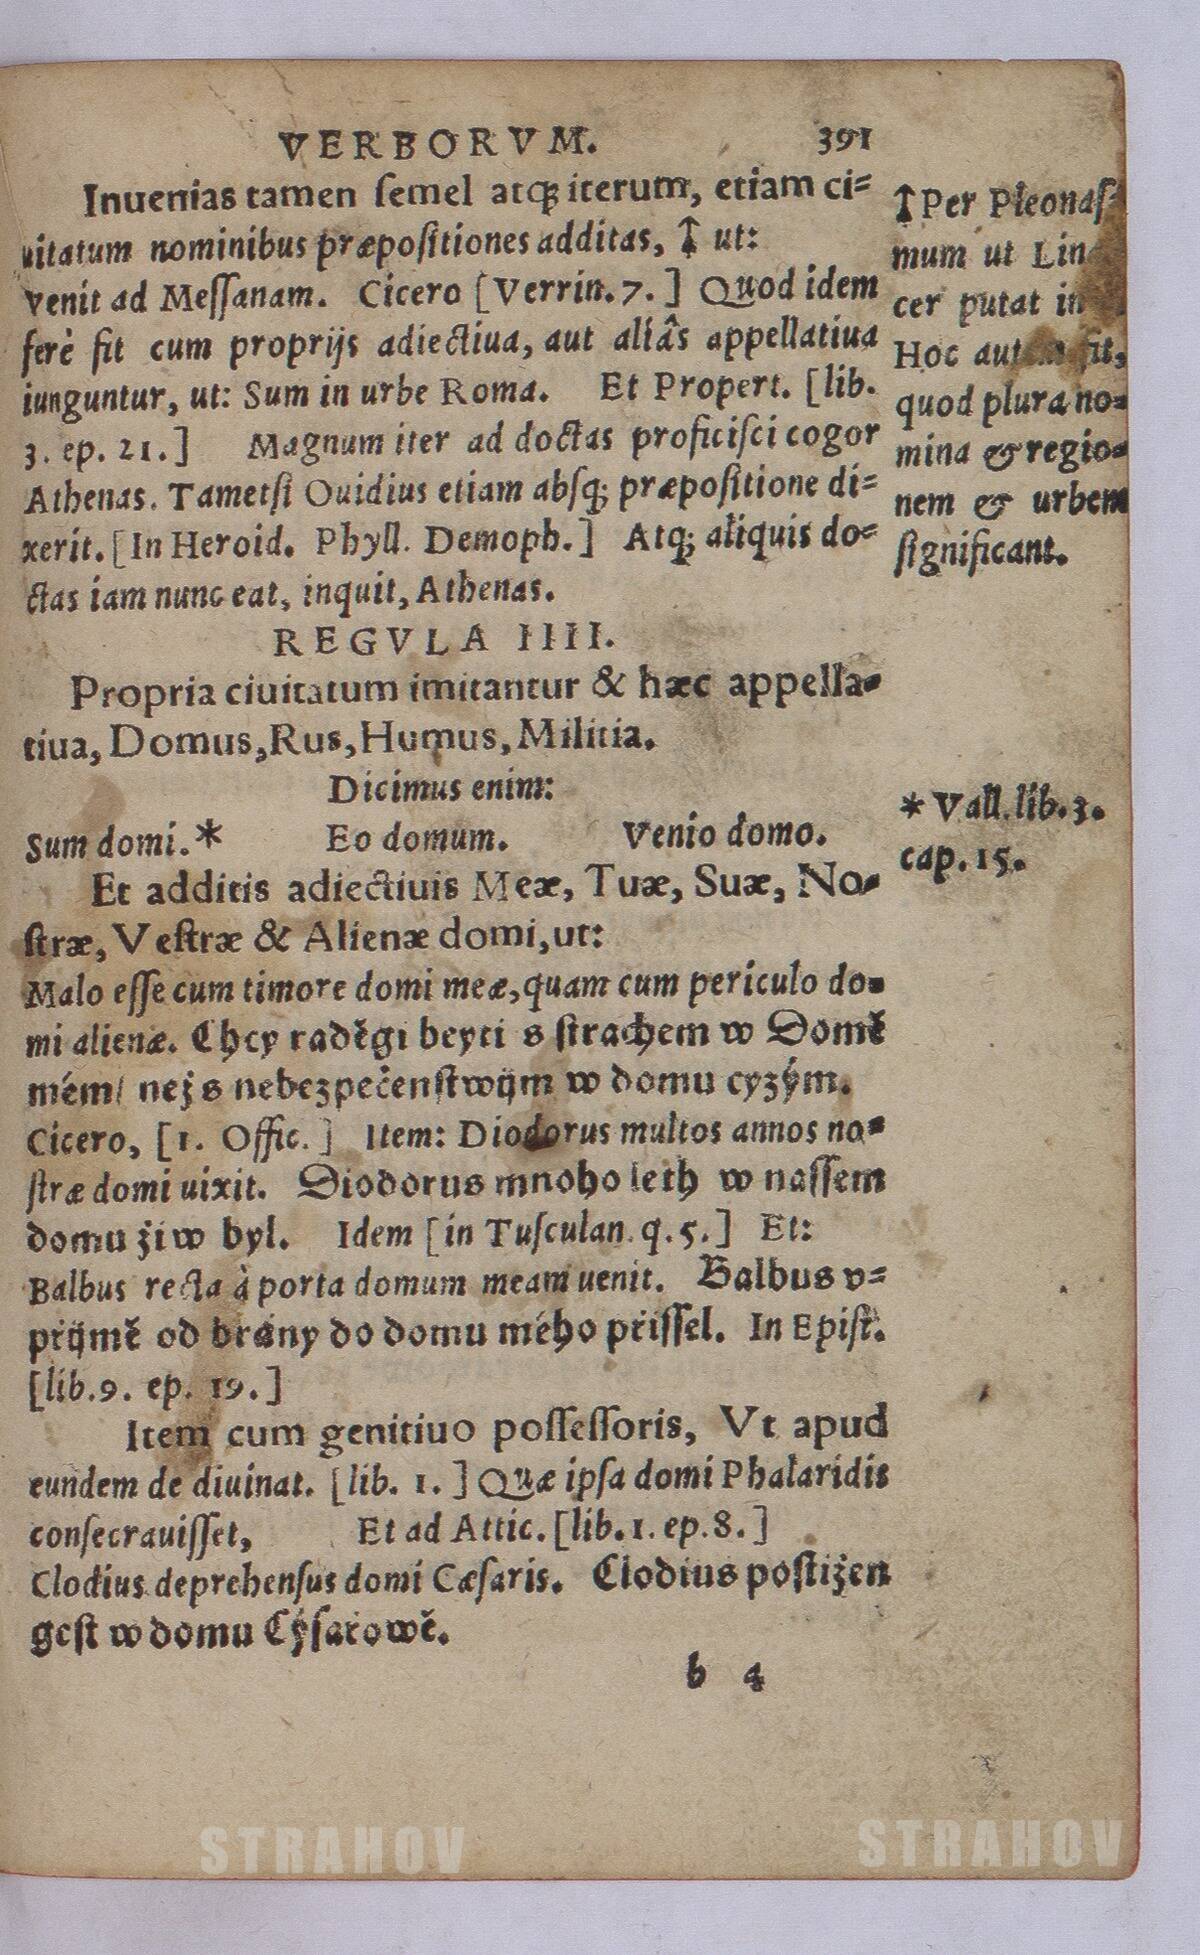 VERBORVM. 391
Inuenias tamen semel atq́; iterum, etiam ci=
uitatum nominibus præpositiones additas, † ut:
Venit ad Messanam. Cicero [Verrin. 7.] Quod idem
ferè fit cum proprijs adiectiua, aut aliâs appellatiua
iunguntur, ut: Sum in urbe Roma. Et Propert. [lib.
3. ep. 21.] Magnum iter ad doctas proficisci cogor
Athenas. Tametsi Ouidius etiam absq; præpositione di=
xerit. [In Heroid. Phyll. Demoph.] Atq; aliquis do=
ctas iam nunc eat, inquit, Athenas.
REGVLA IIII.
Propria ciuitatum imitantur & hæc appella-
tiua, Domus, Rus, Humus, Militia.
Dicimus enim:
Sum domi.* Eo domum. Venio domo.
Et additis adiectiuis Meæ, Tuæ, Suæ, No-
stræ, Vestræ & Alienæ domi, ut:
Malo esse cum timore domi meæ, quam cum periculo do-
mi alienæ. Chcy raděgi beyti s strachem w Domě
mém/ než s nebezpečenstwijm w domu cyzým.
Cicero, [1. Offic.] Item: Diodorus multos annos no-
stræ domi uixit. Diodorus mnoho leth w nassem
domu žiw byl. Idem [in Tusculan. q. 5.] Et:
Balbus recta à porta domum meam uenit. Balbus v=
přijmě od brány do domu mého přissel. In Epist.
[lib. 9. ep. 19.]
Item cum genitiuo possessoris, Vt apud
eundem de diuinat. [lib. 1.] Quæ ipsa domi Phalaridis
consecrauisset, Et ad Attic. [lib. 1. ep. 8.]
Clodius deprehensus domi Cæsaris. Clodius postižen
gest w domu Cýsařowě.
b 4
† Per Pleonas=
mum ut Lin
cer putat in
Hoc autem fit,
quod plura no=
mina & regio=
nem & urbem
significant.
* Vall. lib. 3.
cap. 15.
STRAHOV STRAHOV